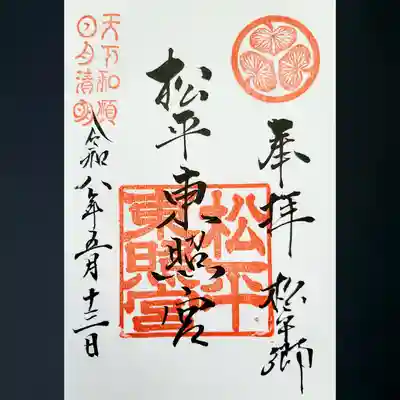 奉拝 松平郷
松平東照宮
松平
東照宮
天下和順
日月清明
令和八年五月十三日